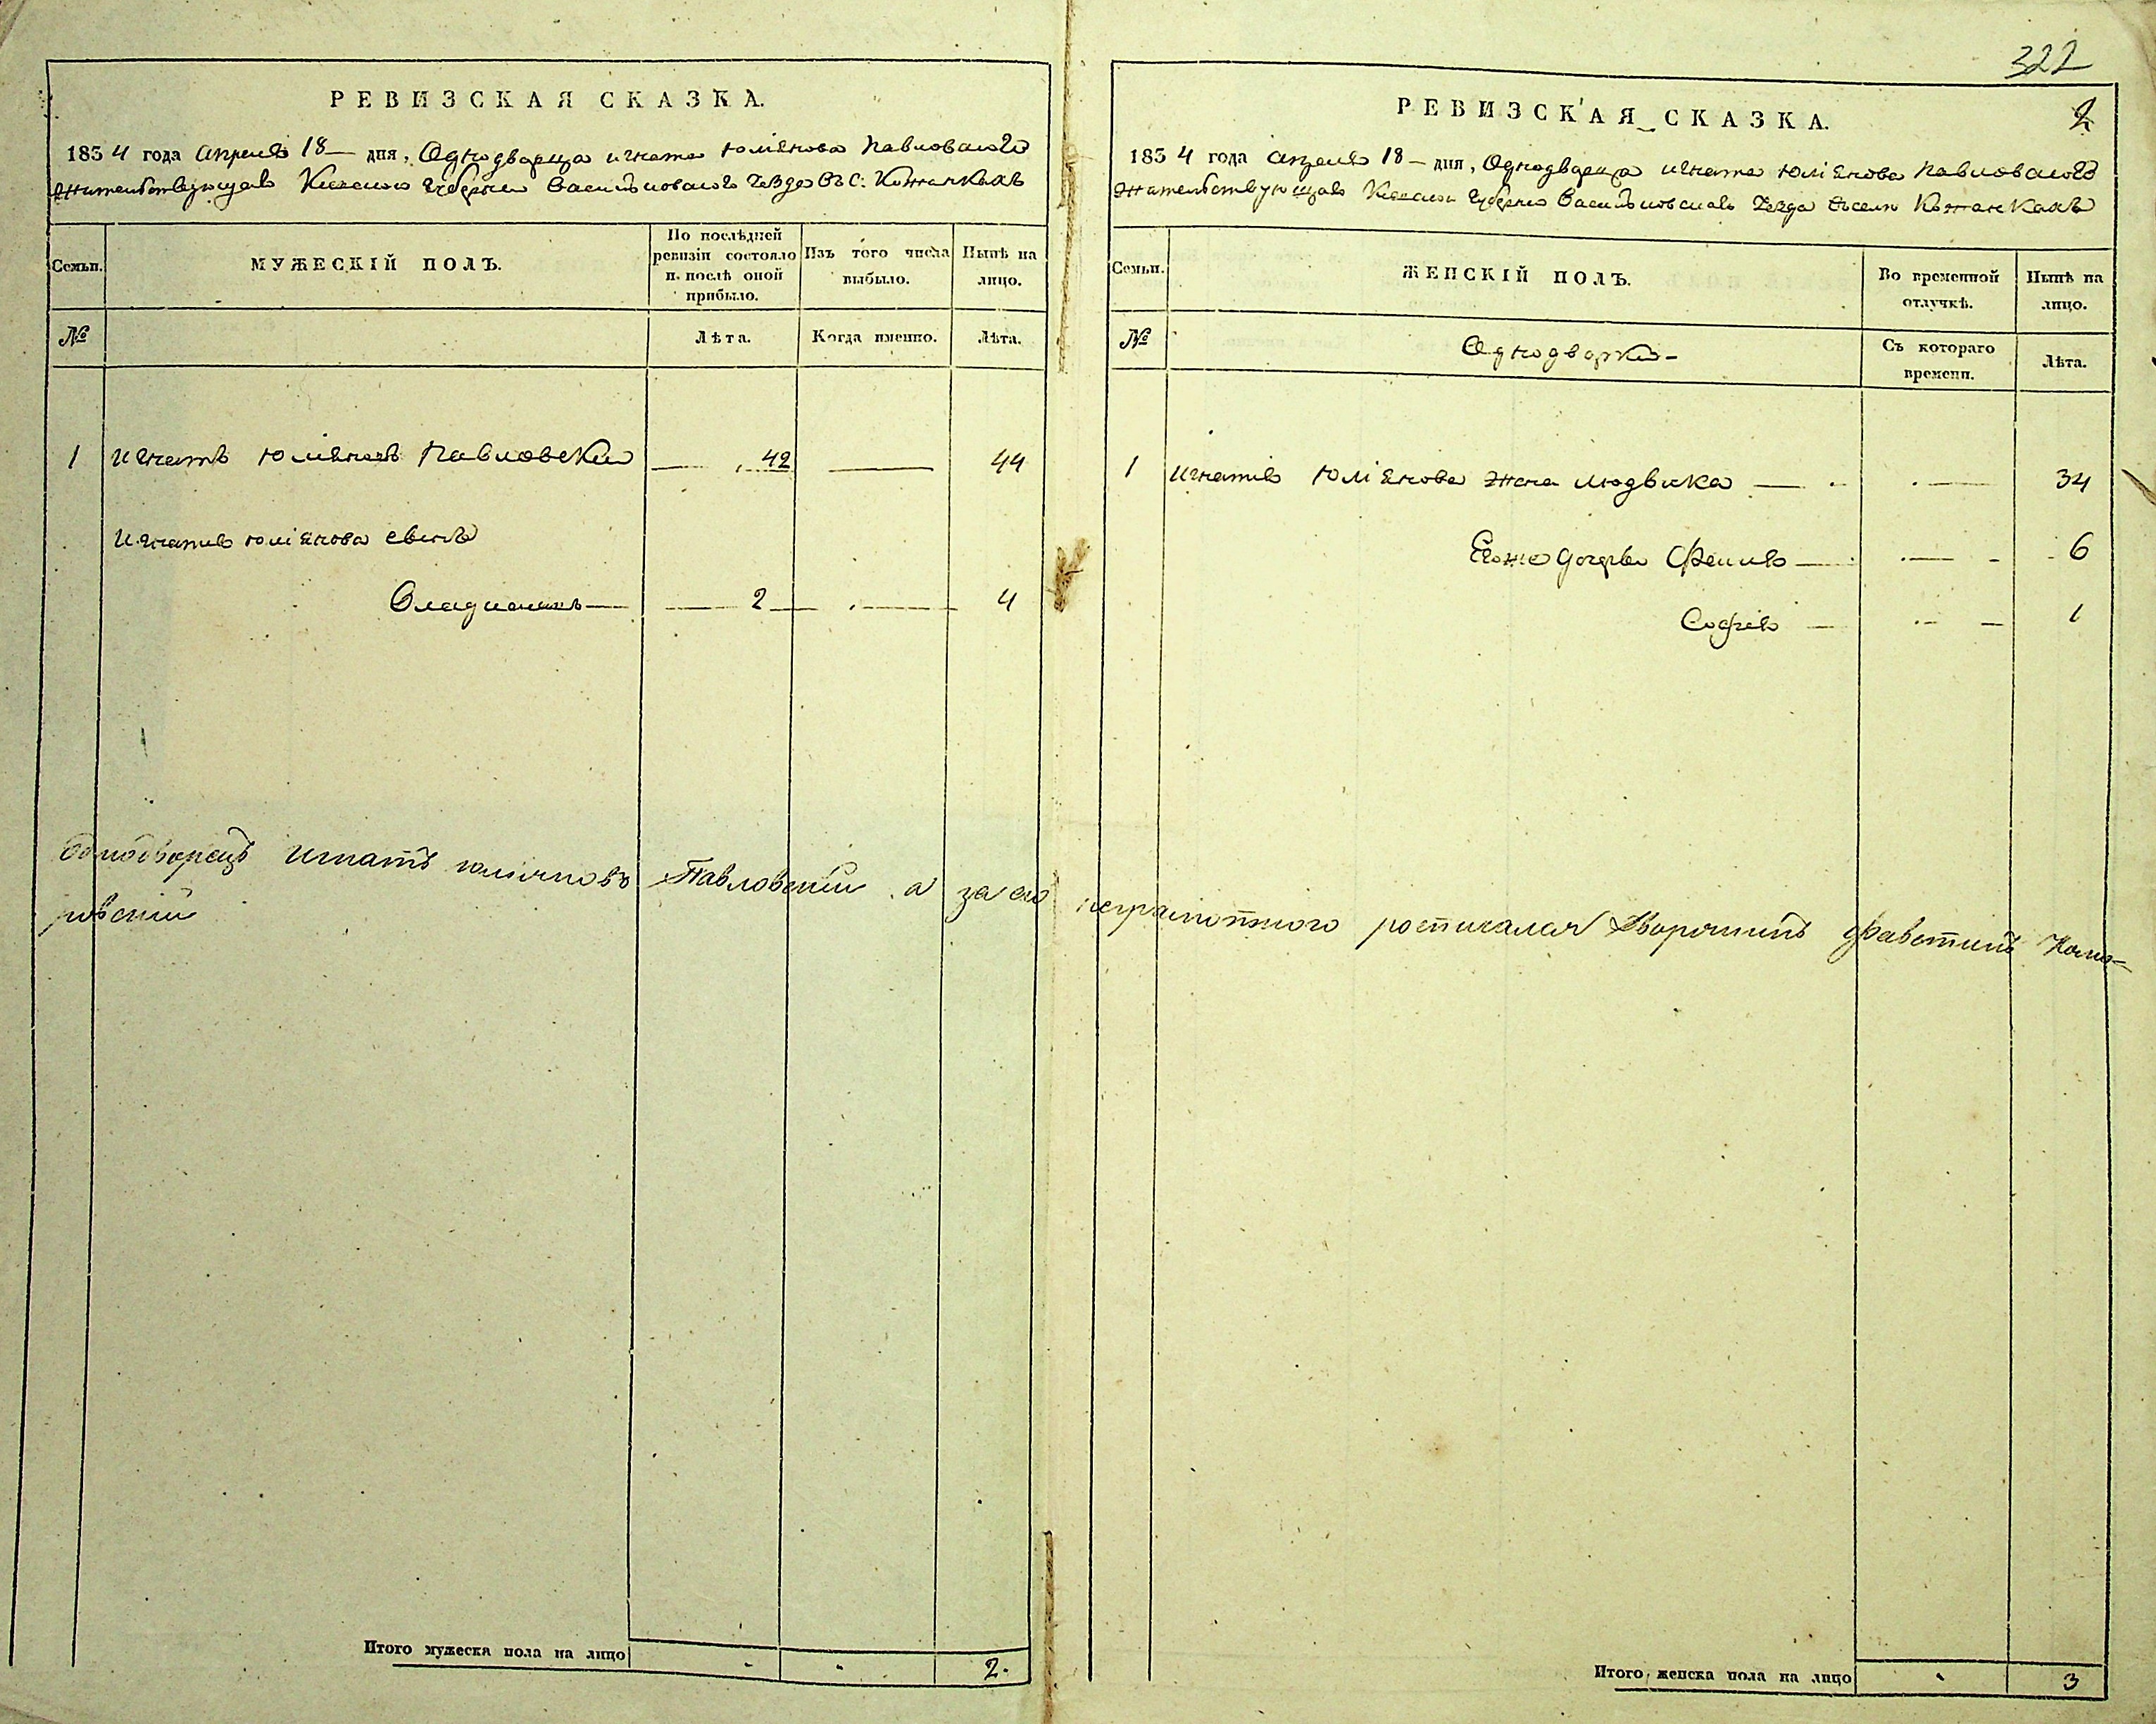 РЕВИЗСКАЯ СКАЗКА.
1834 года апреля 18 дня, Однодворца игната юлiянова павловского
жительствующаго Киевской губернии Васильковского уезда въ с: Кожанкахъ
Семьи.
МУЖЕСКІЙ ПОЛЪ.
По послѣдней ревизіи состояло и послѣ оной прибыло.
Изъ того числа выбыло.
Нынѣ на лицо.
№
Лѣта.
Когда именно.
Лѣта.
1 игнатъ юлiяновъ Павловски 42 44
игнатия юлiянова сынъ
2 4
Однодворецъ Игнатъ юлiяновъ Павловскiй а за его неграмотного росписался Дворянинъ Фавстинъ
Итого мужеска пола на лицо 2.
322
2
РЕВИЗСКАЯ СКАЗКА.
1834 года апреля 18 дня, Однодворца игната юлiянова павловского
жительствующаго Киевской губернии Васильковскаго уезда въ селе Кожанкахъ
Семьи.
ЖЕНСКІЙ ПОЛЪ.
Во временной отлучкѣ.
Нынѣ на лицо.
№
Однодворки
Съ котораго времени.
Лѣта.
1 игнатія юлiянова жена людвика 34
Егоже дочери 6
Софiя 1
Итого женска пола на лицо 3